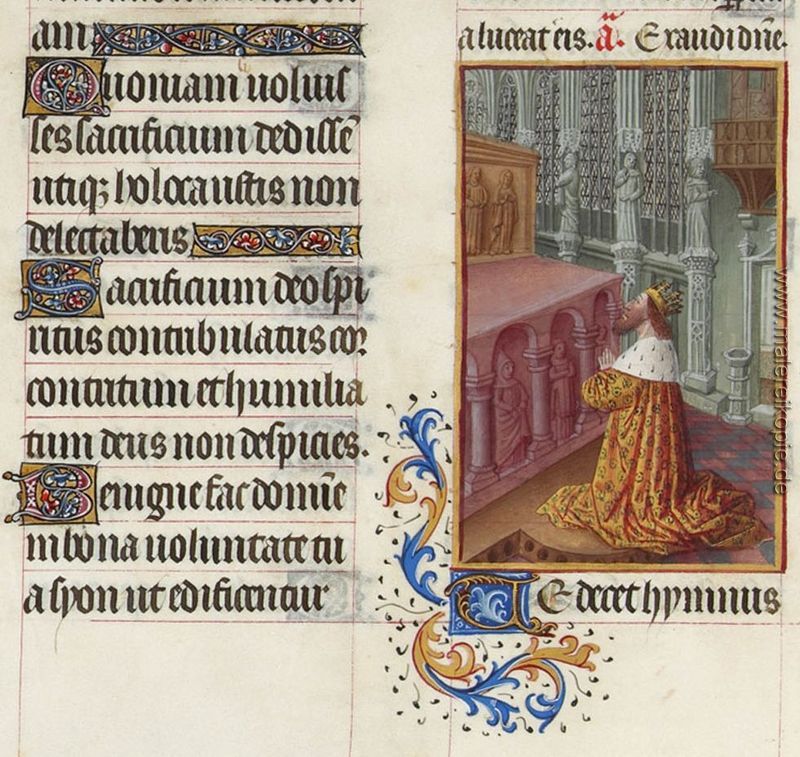 am
Quoniam voluis
ses sacrificium dedissē
utiq; holocaustis non
delectaberis
Sacrificium deo spi
ritus contribulatus cor
contritum et humilia
tum deus non despicies.
Benigne fac domine
in bona voluntate tu
a syon ut edificentur
a luceat eis. a. Exaudi dn̄e.
Te decet hymnus
www.malereikopie.de